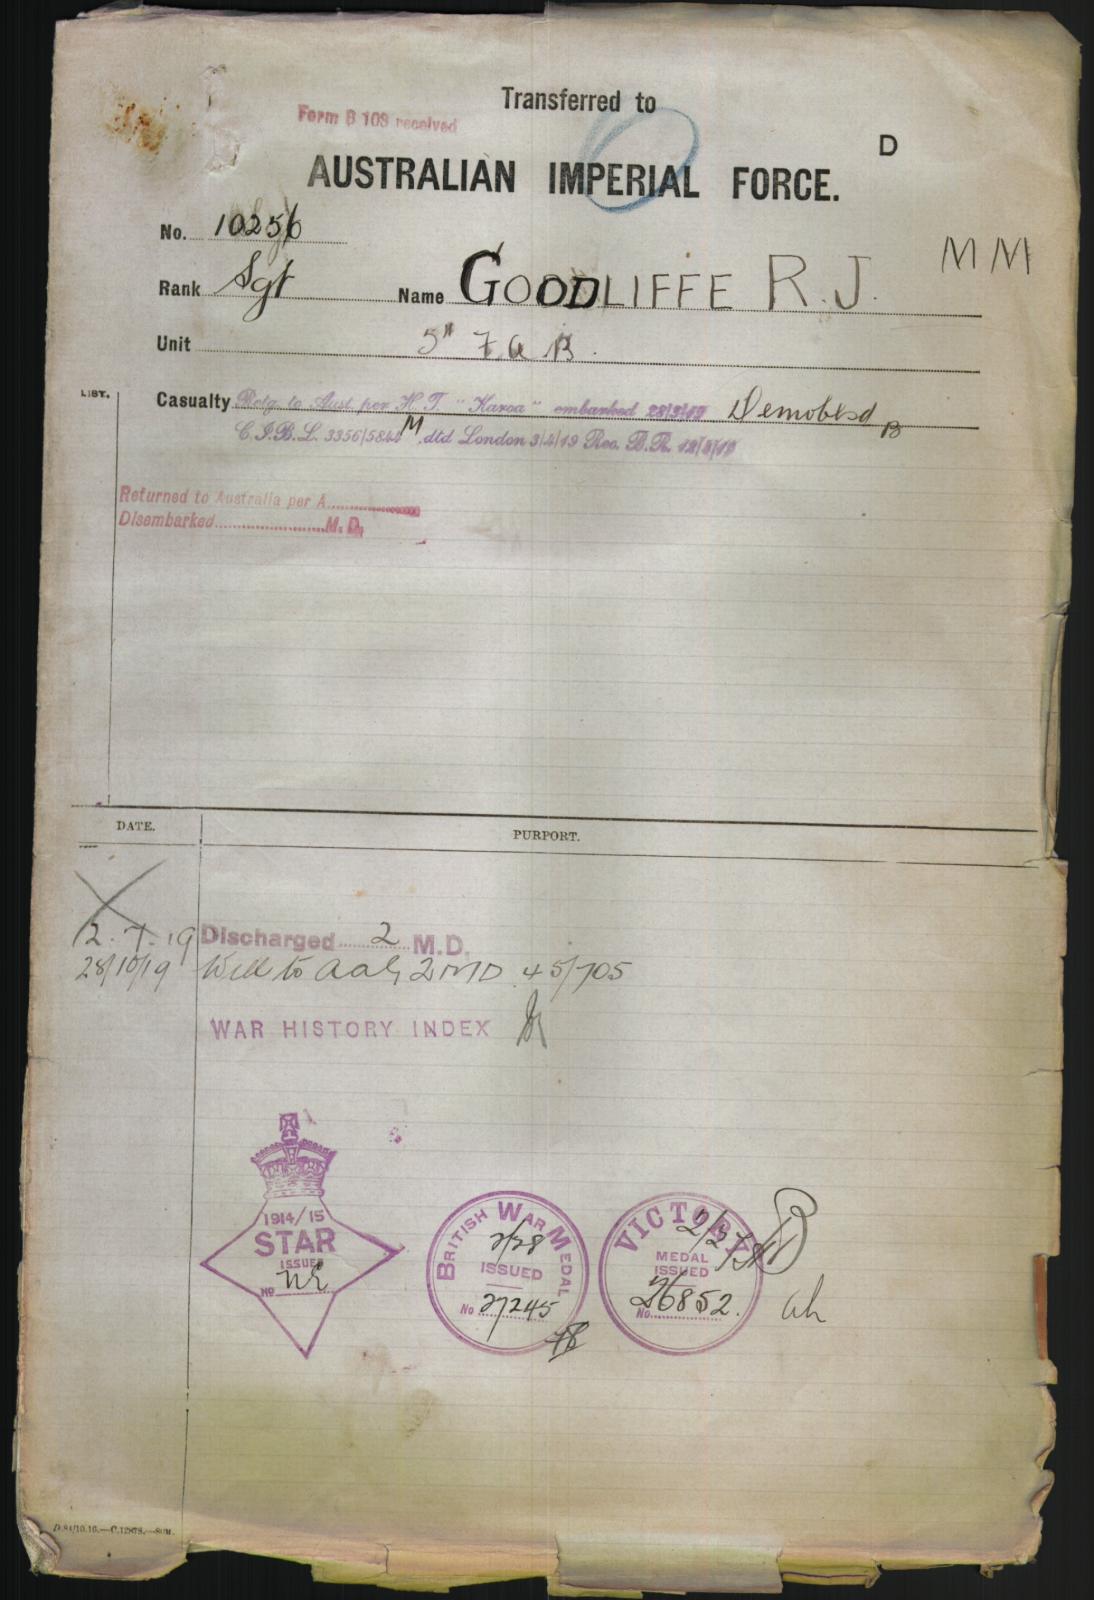 Transferred to
Form B 103 received
D
AUSTRALIAN IMPERIAL FORCE.
No. 10256
MM
Rank Sgt Name GOODLIFFE R.J.
Unit 5" F A B.
LIST.
Casualty Retg. to Aust. per H.T. "Karoa" embarked 28/3/19 Demobbsd B
C.I.B.L. 3356/5844 M dtd London 3/4/19 Rec. B.R. 12/5/19
Returned to Australia per A
Disembarked M.D.
DATE. PURPORT.
12.7.19 Discharged 2 M.D.
28/10/19 Will to AAG 2 MD 45/705
WAR HISTORY INDEX
1914/15
STAR
ISSUED
No NE
BRITISH WAR MEDAL
ISSUED
No 27245
VICTORY
MEDAL
ISSUED
No. 26852.
ah